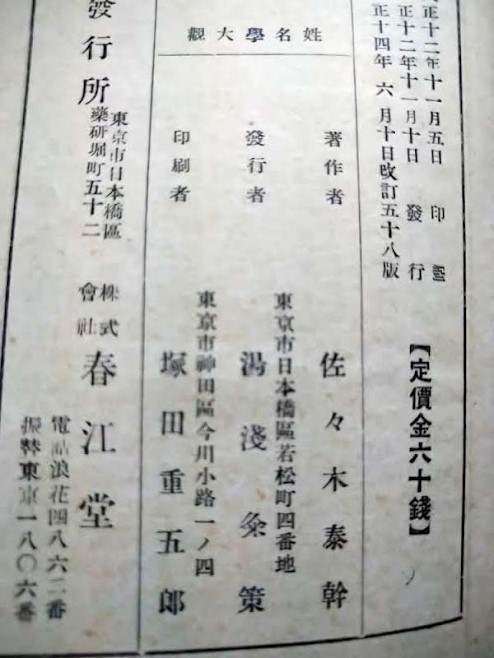 正十二年十一月五日 印
正十二年十一月十日 發行
正十四年六月十日改訂五十八版
【定價金六十錢】
姓名學大觀
著作者 佐々木泰幹
東京市日本橋區若松町四番地
發行者 湯淺粂策
東京市神田區今川小路一ノ四
印刷者 塚田重五郎
發行所
東京市日本橋區
藥研堀町五十二
株式
會社
春江堂
電話浪花四八六二番
振替東京一八〇六番